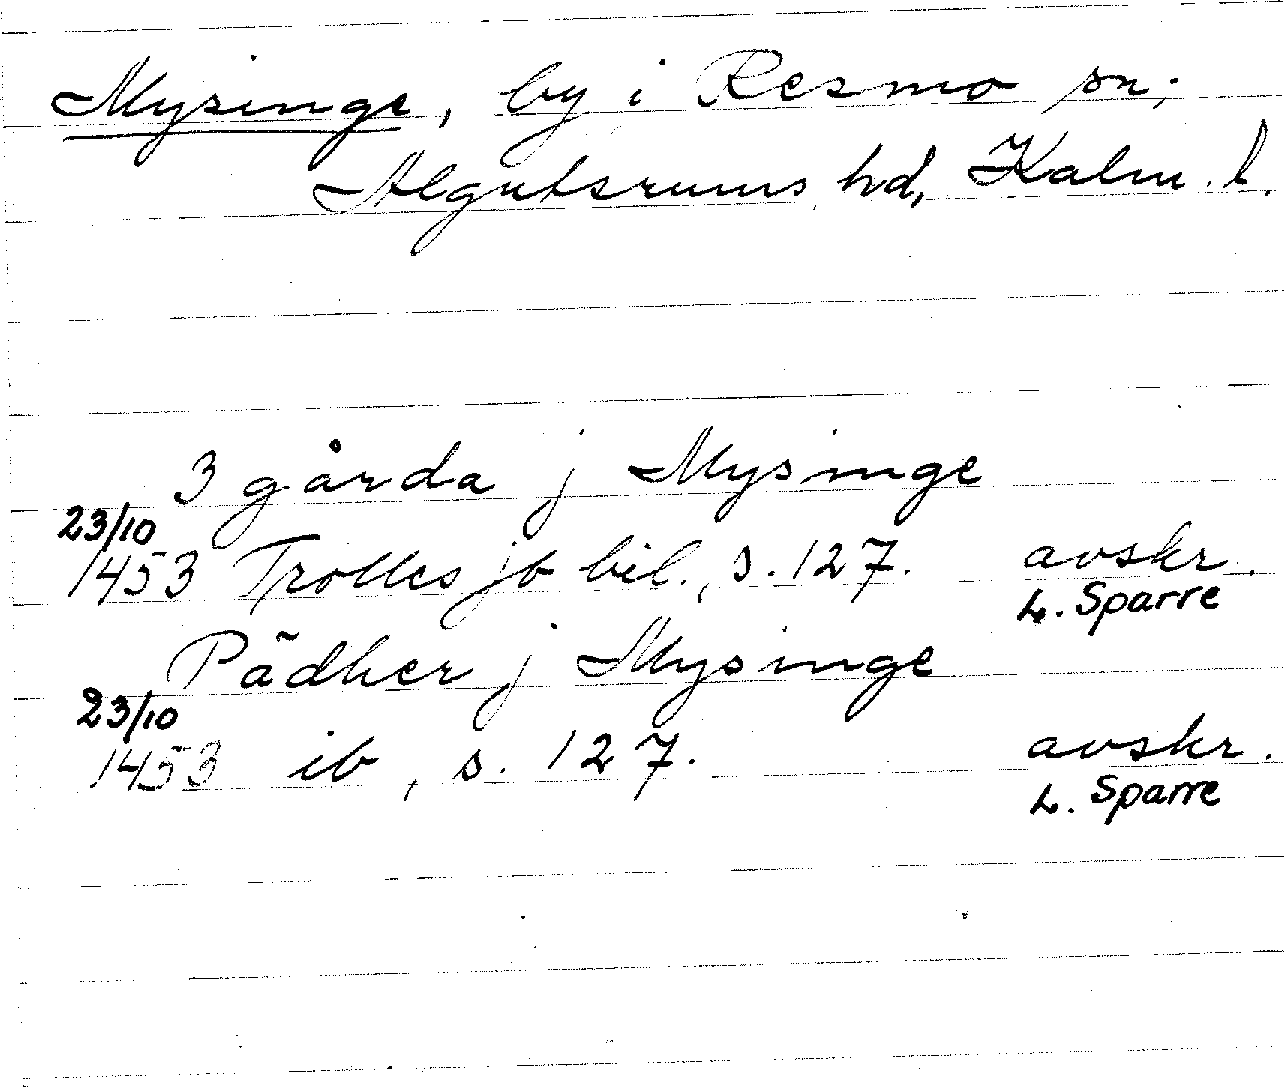 Mysinge, by i Resmo sn;
Algutsrums hd, Kalm. l.
3 gårda j Mysinge
23/10
1453 Trolles jb bil., s. 127. avskr.
L. Sparre
Pädher j Mysinge
23/10
1453 ib, s. 127. avskr.
L. Sparre